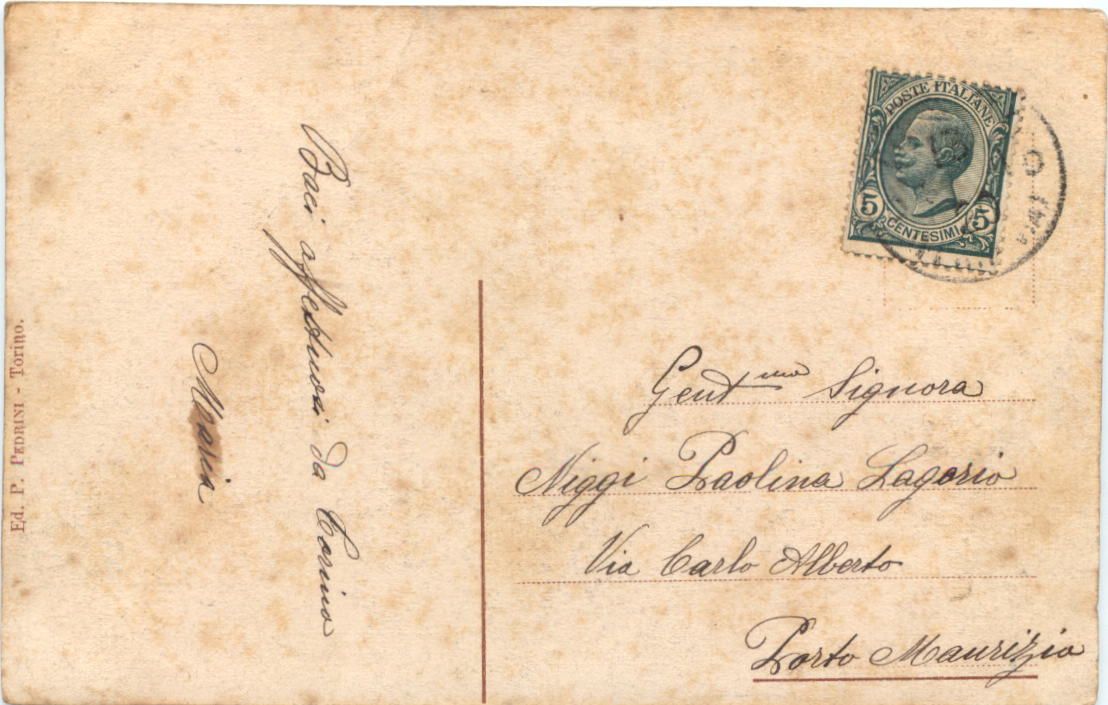 POSTE ITALIANE
5 CENTESIMI 5
Baci affettuosi da Torino
Maria
Gent.ma Signora
Niggi Paolina Lagorio
Via Carlo Alberto
Porto Maurizio
Ed. P. PEDRINI - Torino.